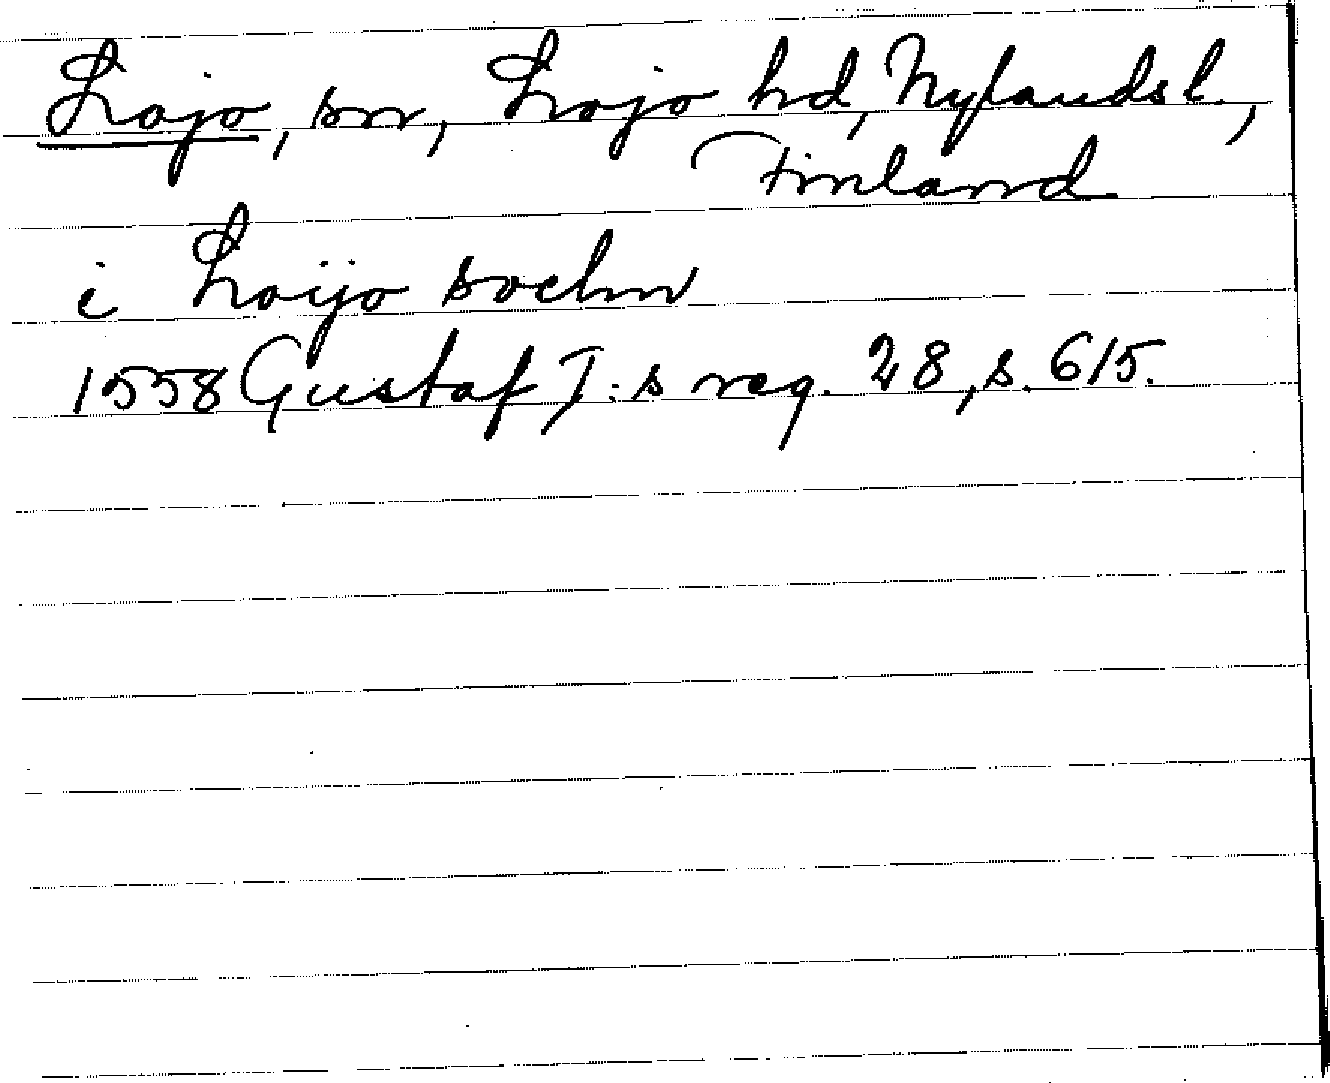 Lojo, sn, Lojo hd, Nylands l.,
Finland
i Loijo sochn
1558 Gustaf I:s reg. 28, s. 615.